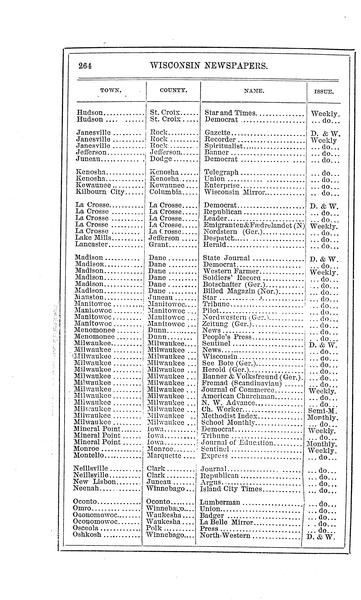 264 WISCONSIN NEWSPAPERS.
TOWN. COUNTY. NAME. ISSUE.
Hudson St. Croix Star and Times Weekly.
Hudson St. Croix Democrat do
Janesville Rock Gazette D. & W.
Janesville Rock Recorder Weekly
Janesville Rock Spiritualist do
Jefferson Jefferson Banner do
Juneau Dodge Democrat do
Kenosha Kenosha Telegraph do
Kenosha Kenosha Union do
Kewaunee Kewaunee Enterprise do
Kilbourn City Columbia Wisconsin Mirror do
La Crosse La Crosse Democrat D. & W.
La Crosse La Crosse Republican do
La Crosse La Crosse Leader do
La Crosse La Crosse Emigranten & Fædrelandet (N) Weekly.
La Crosse La Crosse Nordstern (Ger.) do
Lake Mills Jefferson Despatch do
Lancaster Grant Herald do
Madison Dane State Journal D. & W.
Madison Dane Democrat do
Madison Dane Western Farmer Weekly.
Madison Dane Soldiers' Record do
Madison Dane Botschafter (Ger.) do
Madison Dane Billed Magazin (Nor.) do
Mauston Juneau Star do
Manitowoc Manitowoc Tribune do
Manitowoc Manitowoc Pilot do
Manitowoc Manitowoc Nordwestern (Ger.) do
Manitowoc Manitowoc Zeitung (Ger.) do
Menomonee Dunn News do
Menomonee Dunn People's Press do
Milwaukee Milwaukee Sentinel D. & W.
Milwaukee Milwaukee News do
Milwaukee Milwaukee Wisconsin do
Milwaukee Milwaukee See Bote (Ger.) do
Milwaukee Milwaukee Herold (Ger.) do
Milwaukee Milwaukee Banner & Volksfreund (Ger.) do
Milwaukee Milwaukee Fremad (Scandinavian) do
Milwaukee Milwaukee Journal of Commerce Weekly.
Milwaukee Milwaukee American Churchman do
Milwaukee Milwaukee N. W. Advance do
Milwaukee Milwaukee Ch. Worker Semi-M.
Milwaukee Milwaukee Methodist Index Monthly.
Milwaukee Milwaukee School Monthly do
Mineral Point Iowa Democrat Weekly.
Mineral Point Iowa Tribune do
Mineral Point Iowa Journal of Education Monthly.
Monroe Monroe Sentinel Weekly.
Montello Marquette Express do
Neillsville Clark Journal do
Neillsville Clark Republican do
New Lisbon Juneau Argus do
Neenah Winnebago Island City Times do
Oconto Oconto Lumberman do
Omro Winnebago Union do
Oconomowoc Waukesha Badger do
Oconomowoc Waukesha La Belle Mirror do
Osceola Polk Press do
Oshkosh Winnebago North-Western D. & W.